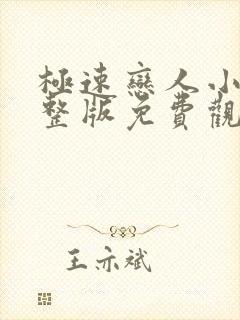 極速戀人小
整版免費觀
王亦斌